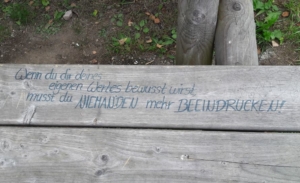 Wenn du dir deines
eigenen Wertes bewusst wirst,
musst du NIEMANDEN mehr BEEINDRUCKEN!